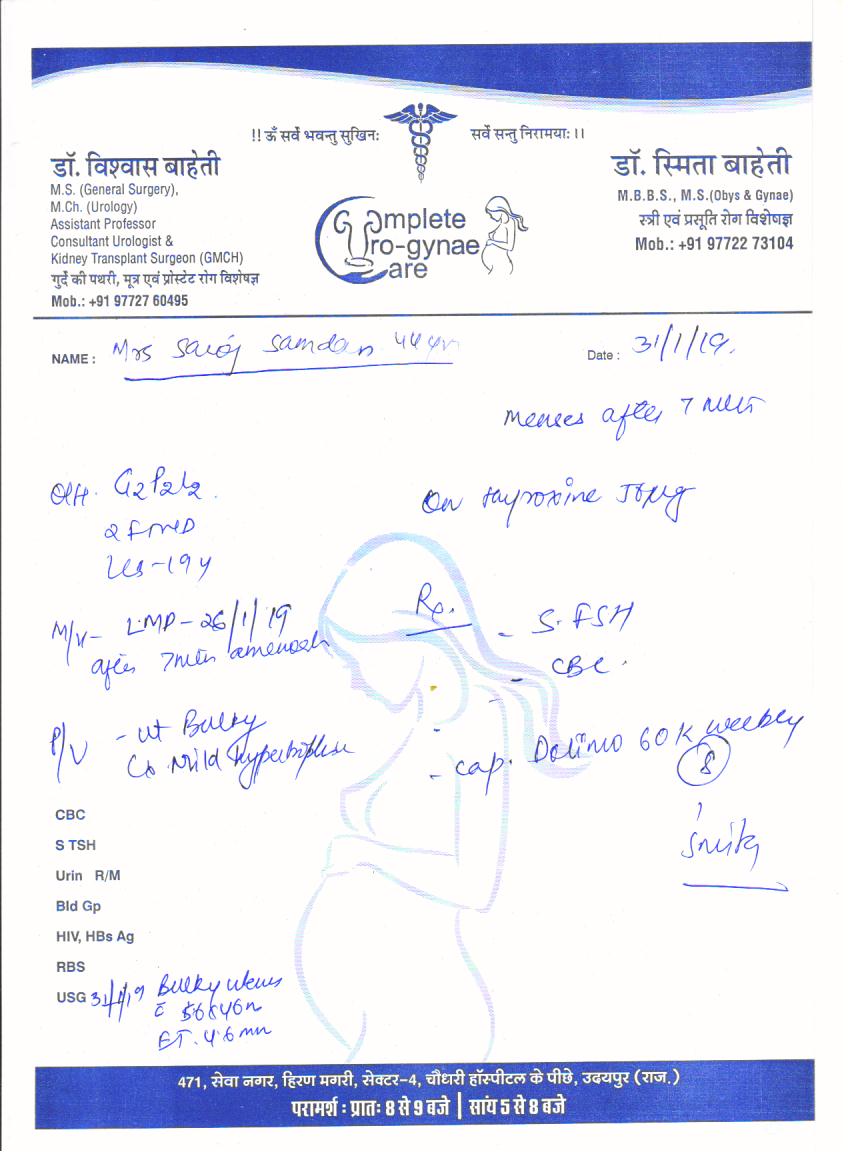 !! ॐ सर्वे भवन्तु सुखिनः
सर्वे सन्तु निरामयाः ।।
डॉ. विश्वास बाहेती
M.S. (General Surgery),
M.Ch. (Urology)
Assistant Professor
Consultant Urologist &
Kidney Transplant Surgeon (GMCH)
गुर्दे की पथरी, मूत्र एवं प्रोस्टेट रोग विशेषज्ञ
Mob.: +91 97727 60495
Complete
Uro-gynae
Care
डॉ. स्मिता बाहेती
M.B.B.S., M.S.(Obys & Gynae)
स्त्री एवं प्रसूति रोग विशेषज्ञ
Mob.: +91 97722 73104
NAME : Mrs Saroj Samdan 44 yr
Date : 31/1/19.
Menses after 7
G2P2L2.
On thyroxine
- 19 y
LMP - 26/1/19
after 7 mths
Rx.
- S. FSH
- CBC.
P/V - Ut Bulky
Cx Mild
- cap. 60K weekly
8
CBC
S TSH
Urin R/M
Bld Gp
HIV, HBs Ag
RBS
USG 31/1/19 Bulky uterus
ET. 4.6 mm
471, सेवा नगर, हिरण मगरी, सेक्टर-4, चौधरी हॉस्पीटल के पीछे, उदयपुर (राज.)
परामर्श : प्रातः 8 से 9 बजे | सांय 5 से 8 बजे